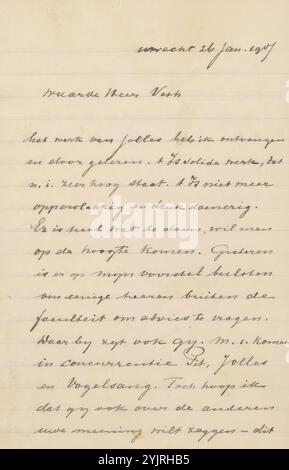 Utrecht 26 Jan. 1907
Waarde Heer Veth
Het werk van Jolles heb ik ontvangen
en door gelezen. 't Is solide werk, dat
m.i. zeer hoog staat. 't Is niet meer
oppervlakkig en
Er is heel wat te doen, wil men
op de hoogte komen. Gisteren
is er op mijn voorstel besloten
om eenige heeren buiten de
faculteit om advies te vragen.
Daarby zyt ook gy. M.i. komen
in concurrentie Pit, Jolles
en Vogelsang. Toch hoop ik
dat gy ook over de anderen
uwe meening wilt zeggen – dit
alamy
Image ID: 2YJRHB5
www.alamy.com